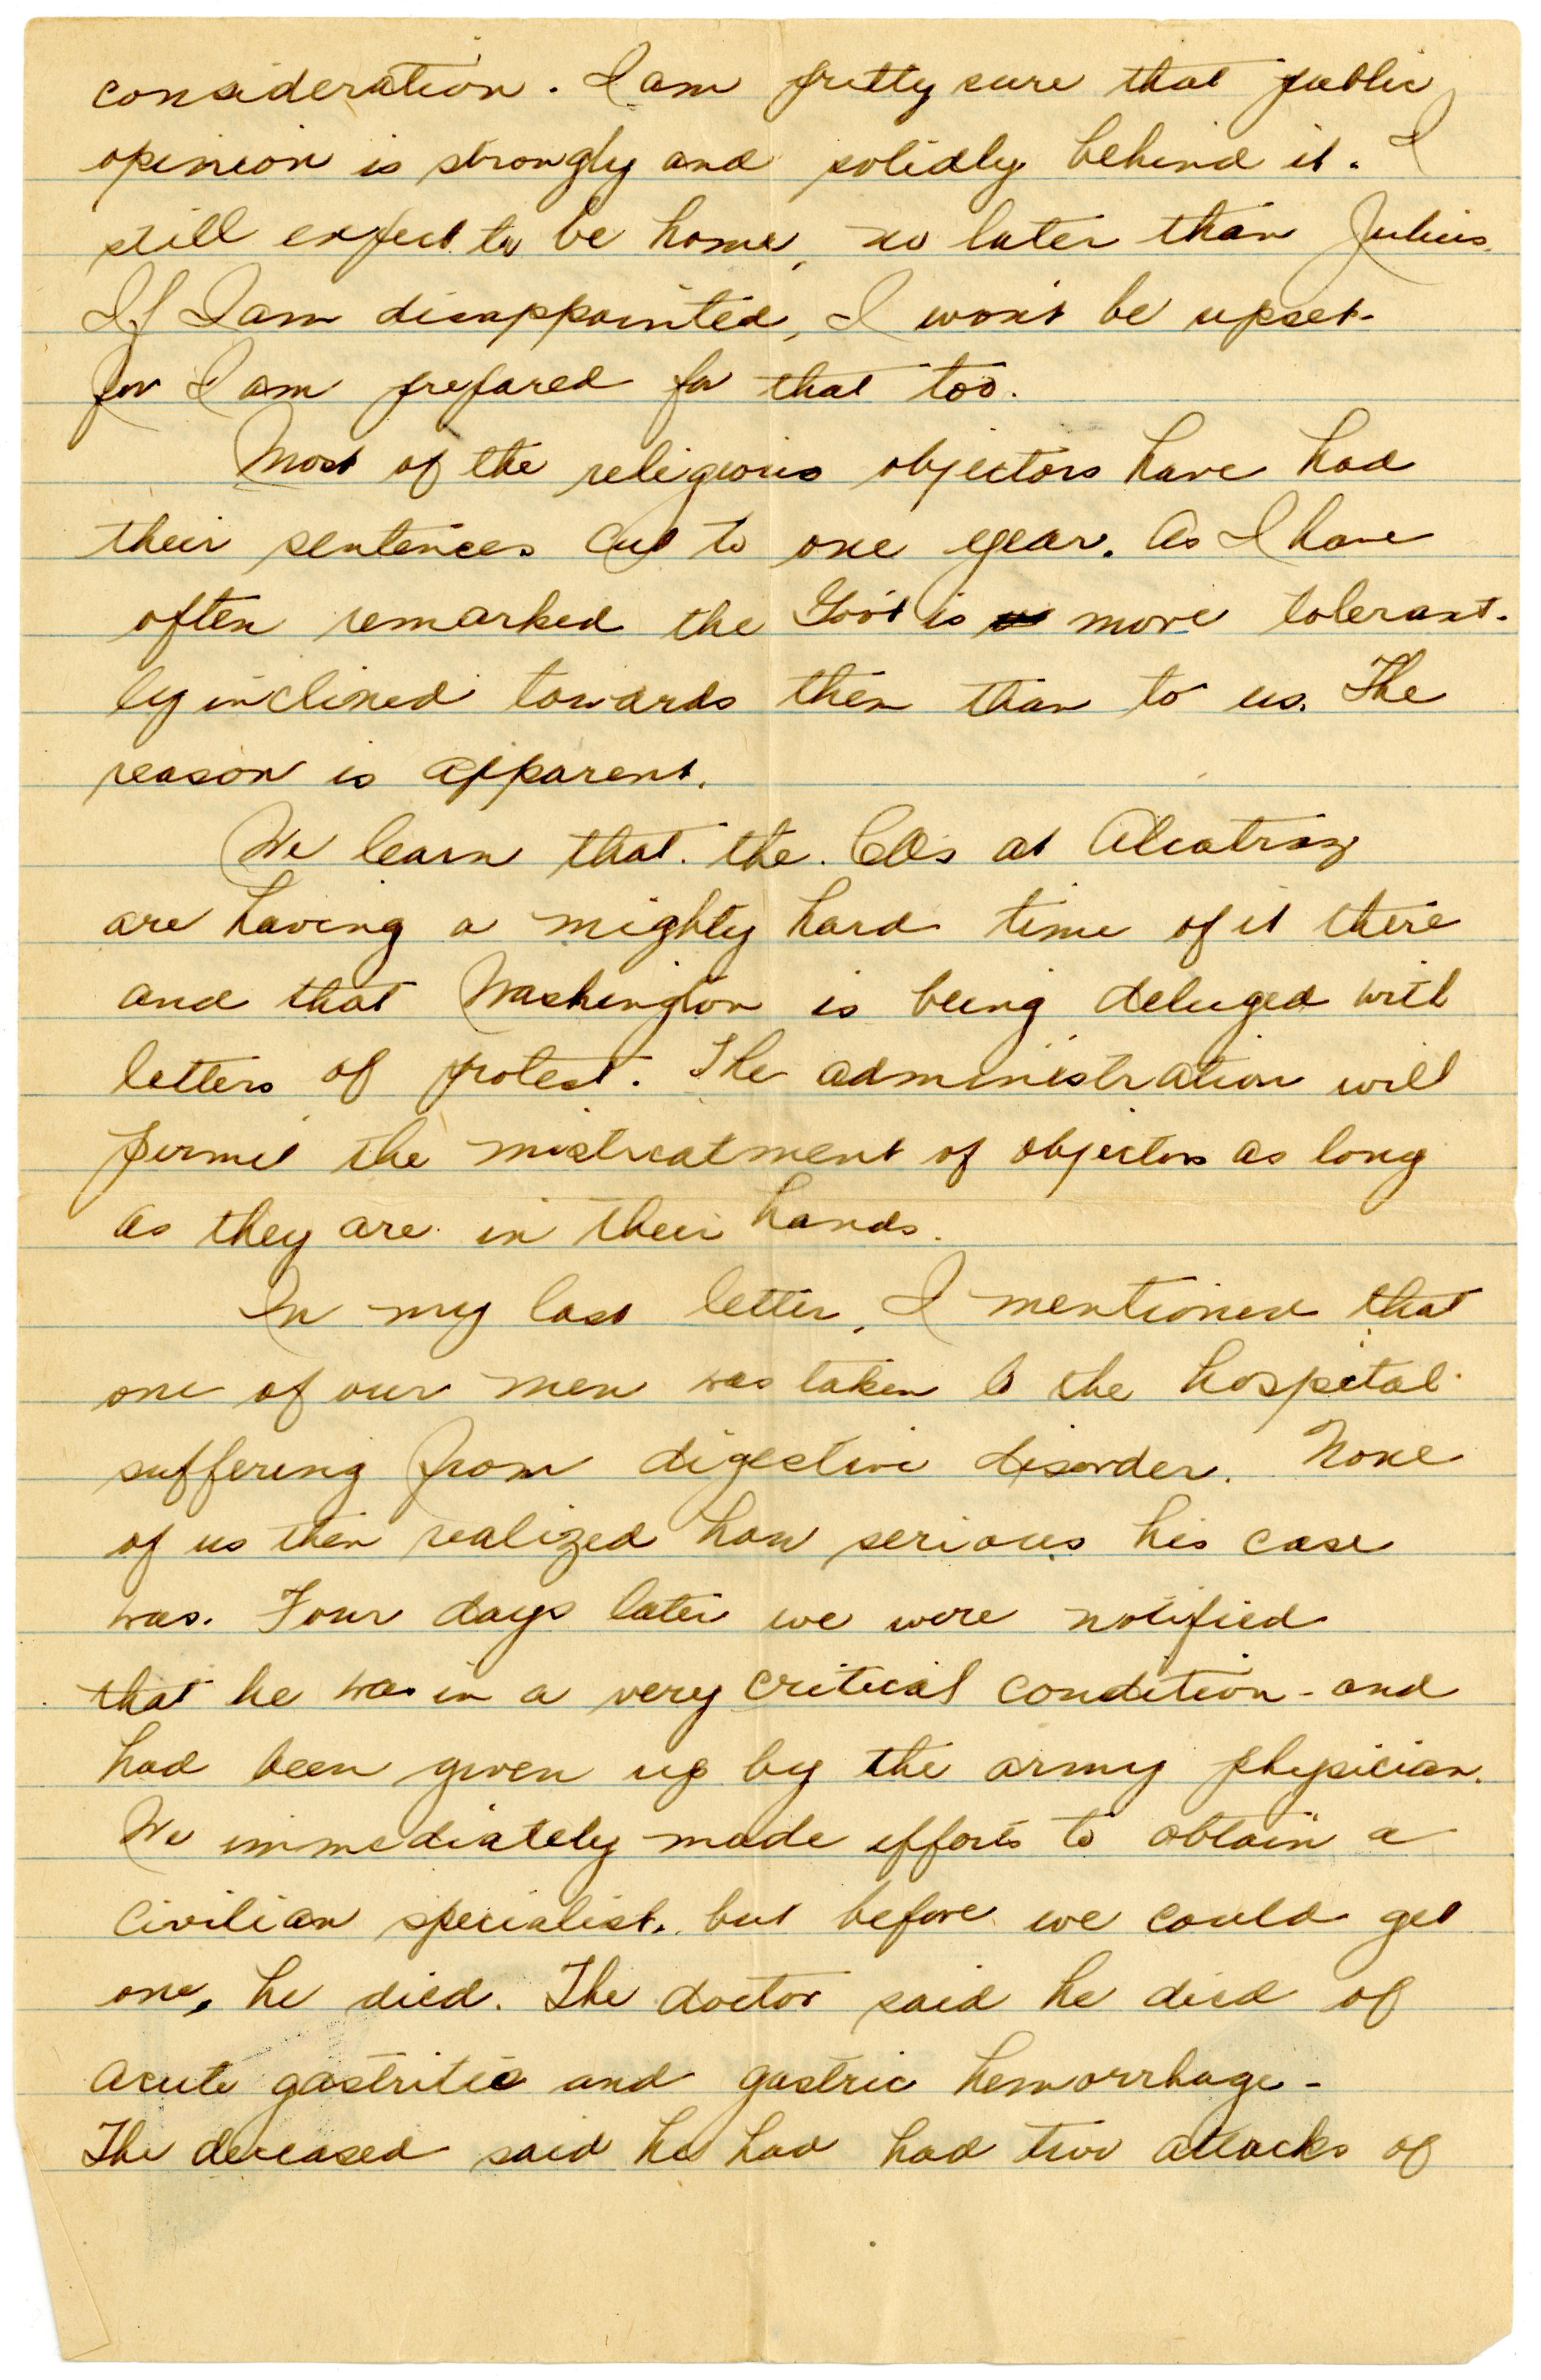 consideration. I am pretty sure that public
opinion is strongly and solidly behind it. I
still expect to be home, no later than Julius.
If I am disappointed, I won't be upset.
for I am prepared for that too.
Most of the religious objectors have had
their sentences cut to one year. As I have
often remarked the Gov't is more tolerant-
ly inclined towards them than to us. The
reason is apparent.
We learn that the COs at Alcatraz
are having a mighty hard time of it there
and that Washington is being deluged with
letters of protest. The administration will
permit the mistreatment of objectors as long
as they are in their hands.
In my last letter, I mentioned that
one of our men was taken to the hospital
suffering from digestive disorder. None
of us then realized how serious his case
was. Four days later we were notified
that he was in a very critical condition - and
had been given up by the army physician.
We immediately made efforts to obtain a
civilian specialist, but before we could get
one, he died. The doctor said he died of
acute gastritis and gastric hemorrhage -
The deceased said he had had two attacks of